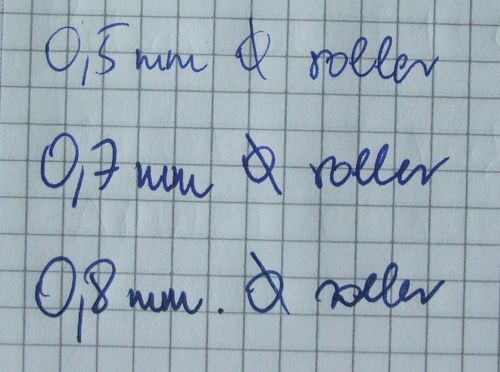 0,5 mm Ø roller
0,7 mm Ø roller
0,8 mm. Ø roller